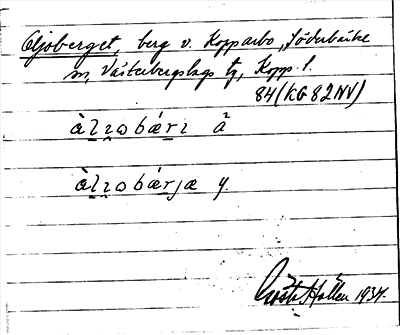 Oljoberget, berg v. Kopparbo, Söderbärke
sn, Västerbergslags tg, Kopp. l.
84 (KG 82 NV)
àlıɷbǽrı å²
àlıɷbárjæ y.
Gösta Hallén 1934.